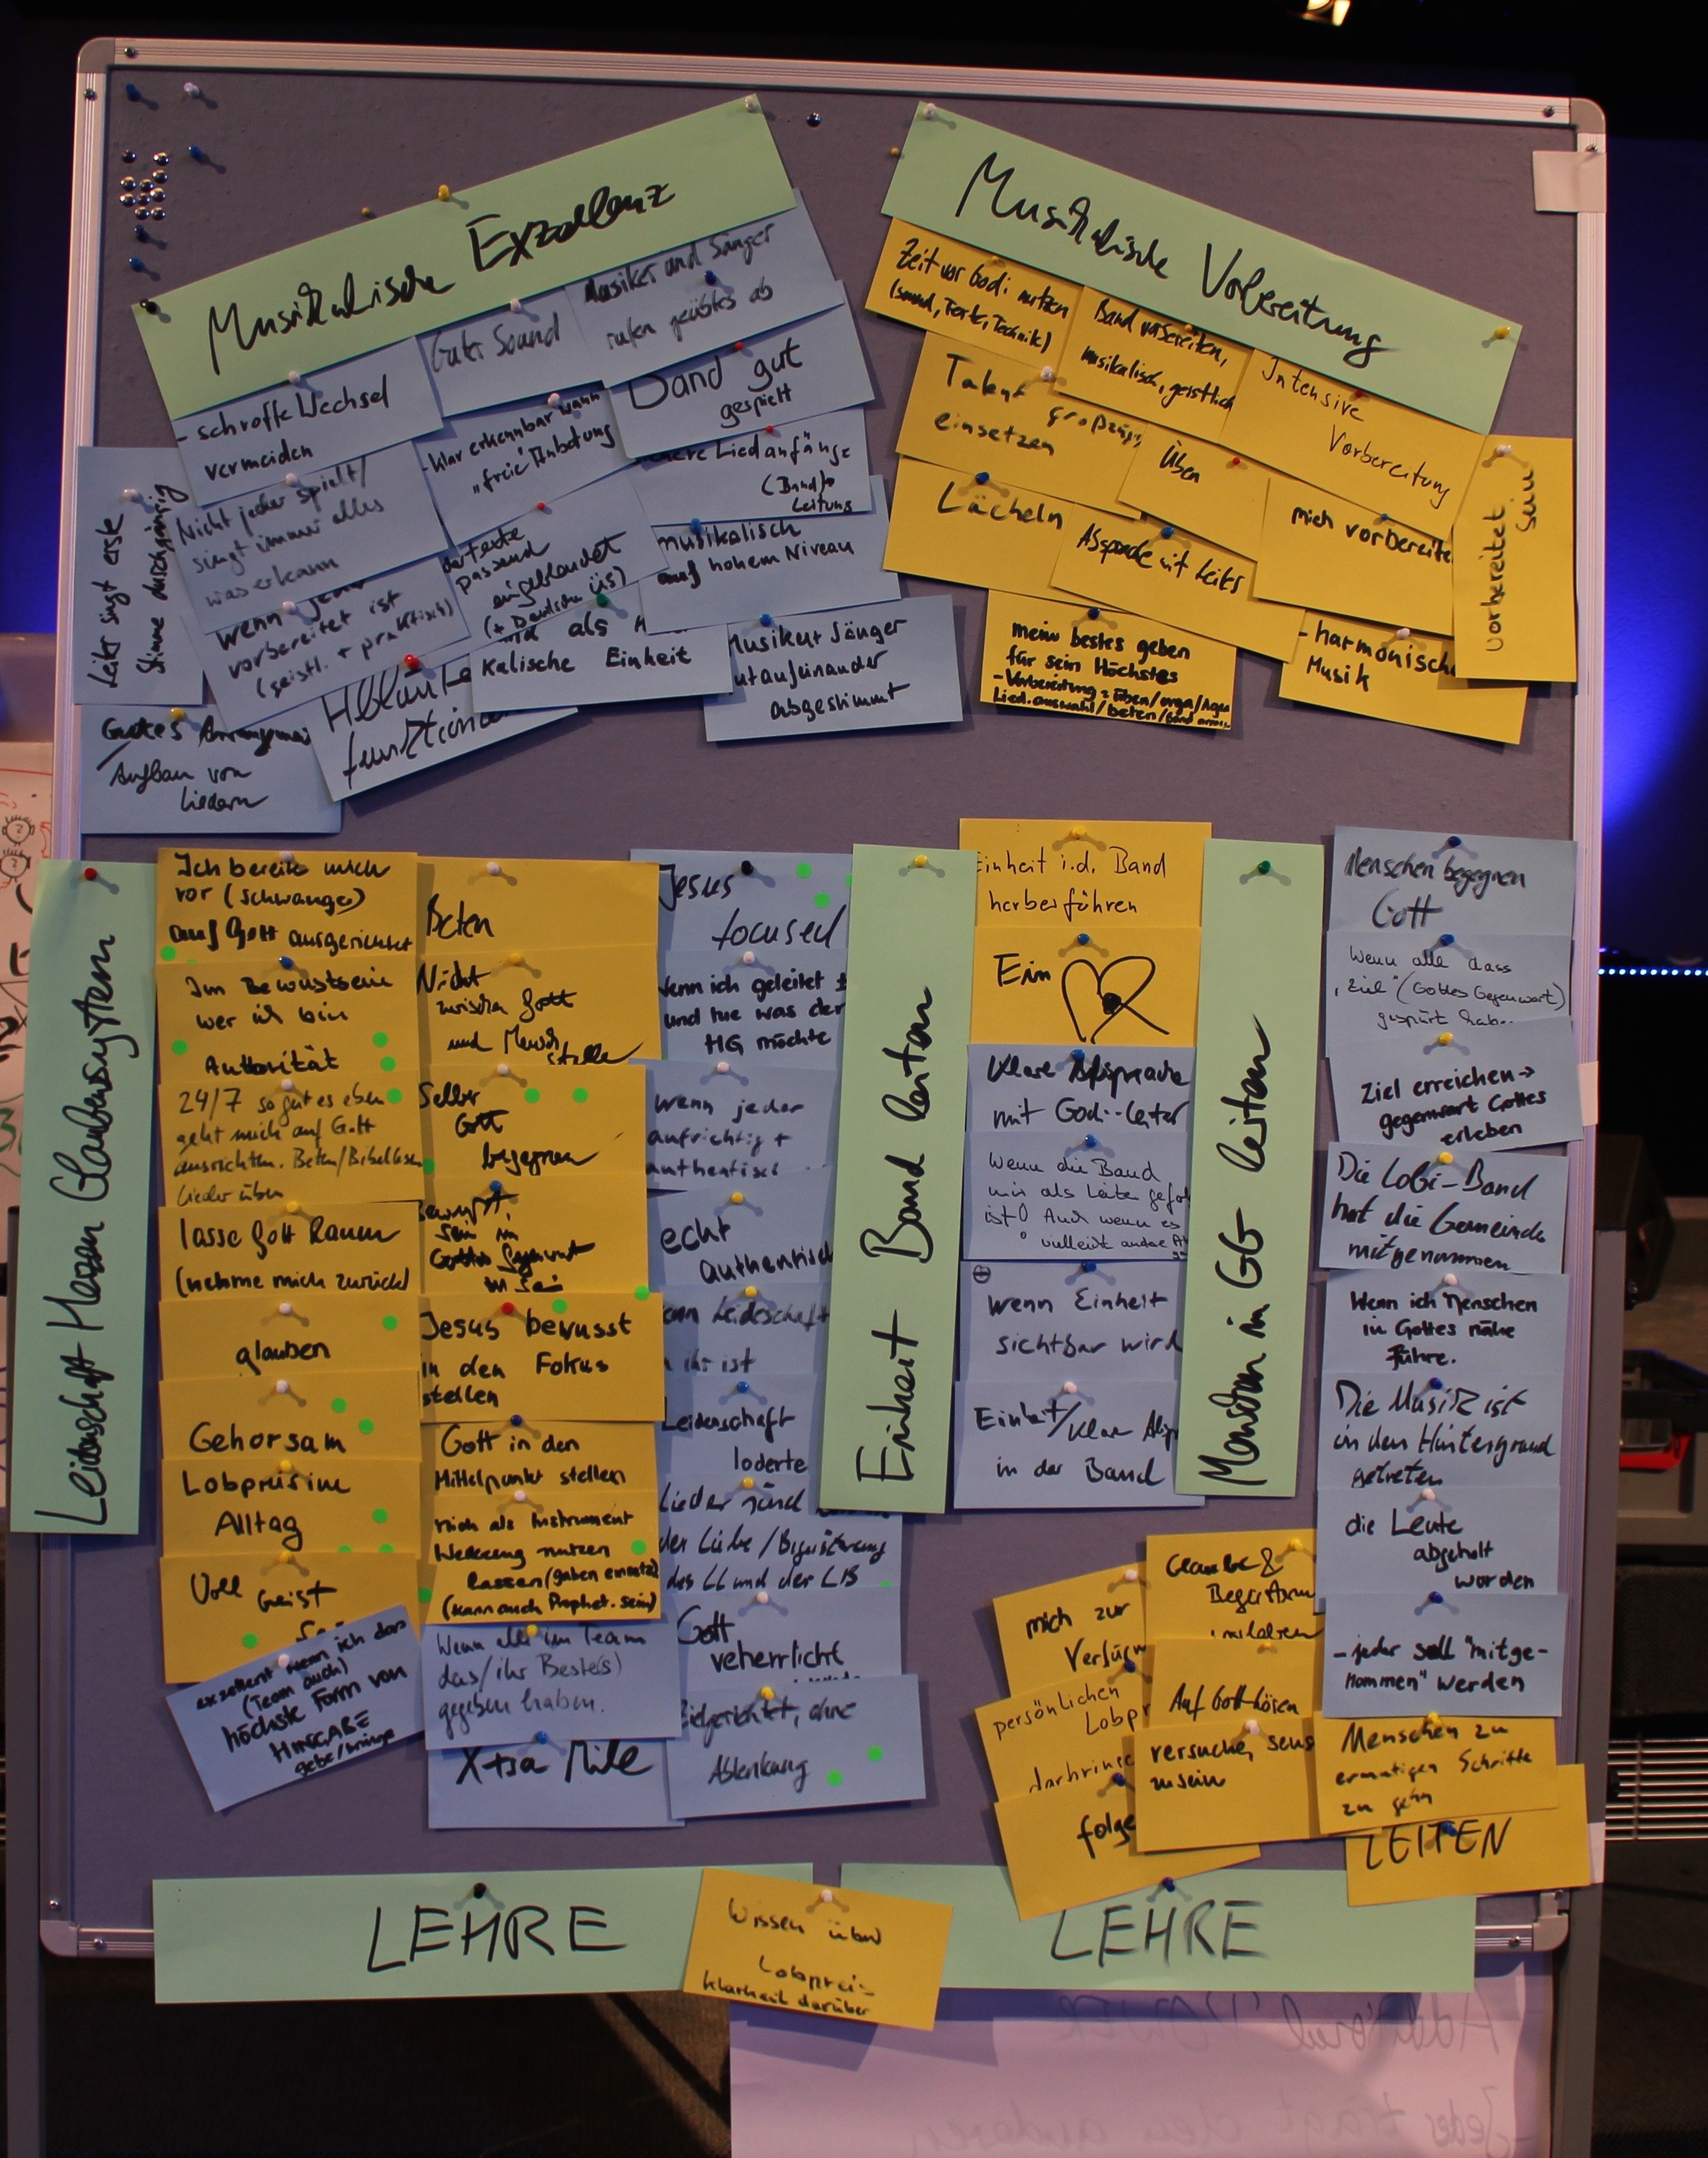 Musikalische Exzellenz
- schroffe Wechsel
vermeiden
Guter Sound
Musiker und Sänger
rufen geübtes ab
Band gut
gespielt
- klar erkennbar wann
"freie" Anbetung
Liedanfänge
(Band)
Leitung
Nicht jeder spielt/
singt immer alles
was er kann
Leiter singt erste
Stimme durchgängig
passend
eingeblendet
(+ Deutsche Üs)
musikalisch
auf hohem Niveau
wenn jeder
vorbereitet ist
(geistl. + praktisch)
als
kalische Einheit
Musiker + Sänger
gut aufeinander
abgestimmt
Abläufe
Gutes
Aufbau von
Liedern
Musikalische Vorbereitung
Zeit vor Godi nutzen
(Sound, Texte, Technik)
Band vorbereiten,
musikalisch, geistlich
Intensive
Vorbereitung
Talent großzügig
einsetzen
Üben
Lächeln
Absprache mit Leiter
mich vorbereite
vorbereitet
sein
mein bestes geben
für sein Höchstes
- Vorbereitung = üben/orga/
Lied.auswahl/beten/
- harmonische
Musik
Leidenschaft Herzen Glaubenssystem
Ich bereite mich
vor (schwanger)
auf Gott ausgerichtet
Im Bewustsein
wer ich bin
Autorität
24/7 so gut es eben
geht mich auf Gott
ausrichten. Beten/Bibellesen
Lieder üben
lasse Gott Raum
(nehme mich zurück)
glauben
Gehorsam
Lobpreis im
Alltag
Voll Geist
exzellent wenn ich das
(Team auch)
höchste Form von
HINGABE
gebe/bringe
Beten
Nicht
zwischen Gott
und Mensch
stellen
Selber
Gott
begegnen
Bewusst
sein in
Gottes Gegenwart
zu sein
Jesus bewusst
in den Fokus
stellen
Gott in den
Mittelpunkt stellen
mich als Instrument
Werkzeug nutzen
lassen (gaben einsetz)
(kann auch Prophet. sein)
Wenn alle im Team
das/ihr Beste(s)
gegeben haben.
Xtra Mile
Jesus
focused
Wenn ich geleitet
und tue was der
HG möchte
wenn jeder
aufrichtig +
authentisch
echt
authentisch
Leideschaft
ist
Leidenschaft
loderte
Lieder sind
der Liebe/Begeisterung
des LL und der LPB
Gott
veherrlicht
Zielgerichtet, ohne
Ablenkung
Einheit Band leiten
Einheit i.d. Band
herbeiführen
Ein
Klare Absprache
mit Godi-Leiter
Wenn die Band
mir als Leiter
ist! Auch wenn es
vielleicht andre
wenn Einheit
sichtbar wird
Einheit/klare
in der Band
Menschen in GG leiten
Menschen begegnen
Gott
Wenn alle dass
"Ziel" (Gottes Gegenwart)
gespürt hab..
Ziel erreichen →
gegenwart Gottes
erleben
Die LoBi-Band
hat die Gemeinde
mitgenommen
Wenn ich Menschen
in Gottes nähe
führe.
Die Musik ist
in den Hintergrund
getreten
die Leute
abgeholt
worden
- jeder soll "mitge-
nommen" werden
Menschen zu
ermutigen Schritte
zu gehn
LEITEN
Glaube &
mich zur
persönlichen
Lobpr
Auf Gott hören
versuche, sens
zu sein
folge
LEHRE
Wissen über
Lobpreis
Klarheit darüber
LEHRE